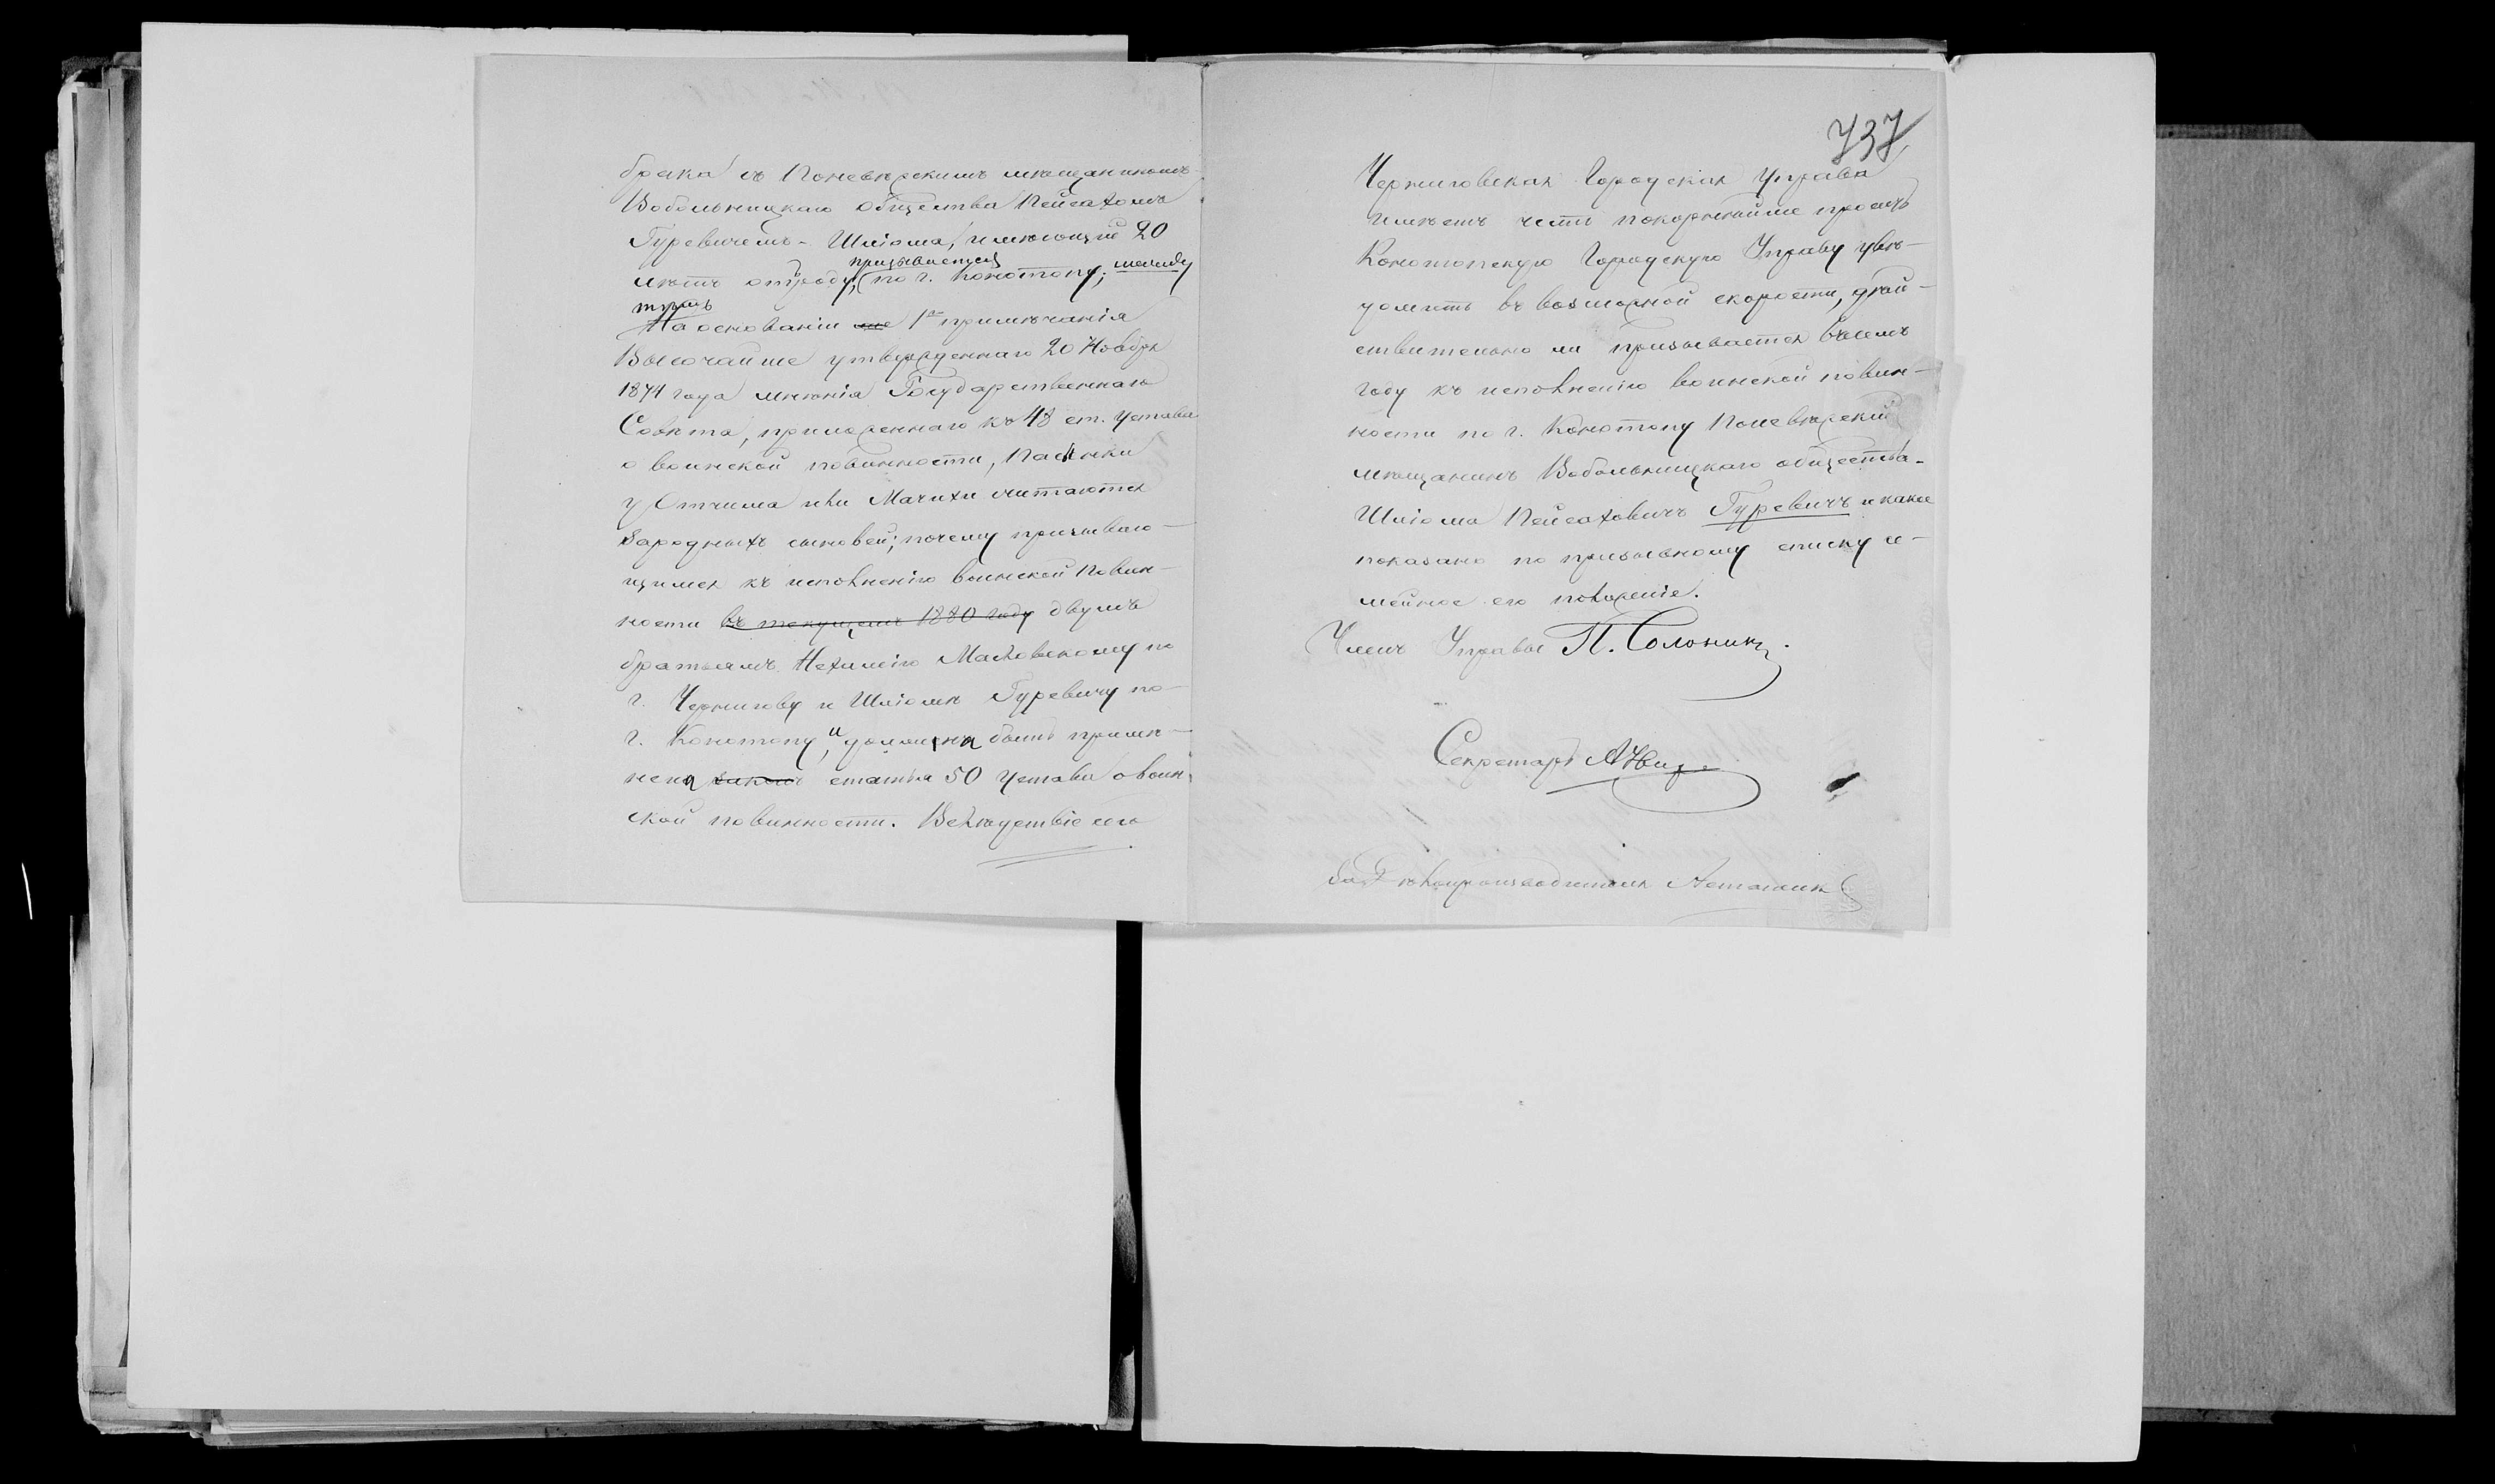 брака съ Поневѣжскимъ мѣщаниномъ
Вобольницкаго общества Пейсахомъ
Гуревичемъ - Шліома, имѣющій 20
призывается
лѣтъ отъ роду, по г. Конотопу; между
тѣмъ
На основаніи 1го примѣчанія
Высочайше утвержденнаго 20 Ноября
1874 года мнѣнія Государственнаго
Совѣта, приложеннаго къ 48 ст. Устава
о воинской повинности, Пасынки
у Отчима или Мачихи считаются
за родныхъ сыновей; почему призываю-
щимся къ исполненію воинской повин-
ности въ текущемъ 1880 году двумъ
братьямъ Нехимію Масловскому по
г. Чернигову и Шліомѣ Гуревичу по
г. Конотопу, и должна быть примѣ-
нена законъ статья 50 Устава о воин-
ской повинности. Вслѣдствіе сего
737
Черниговская Городская Управа
имѣетъ честь покорнѣйше просить
Конотопскую Городскую Управу увѣ-
домить въ возможной скорости, дѣй-
ствительно ли призывается въ семъ
году къ исполненію воинской повин-
ности по г. Конотопу Поневѣжскій
мѣщанинъ Вобольницкаго общества
Шліома Пейсаховичъ Гуревичъ и какое
показано по призывному списку се-
мейное его положеніе.
Членъ Управы П. Солонина
Секретарь
За Дѣлопроизводителя